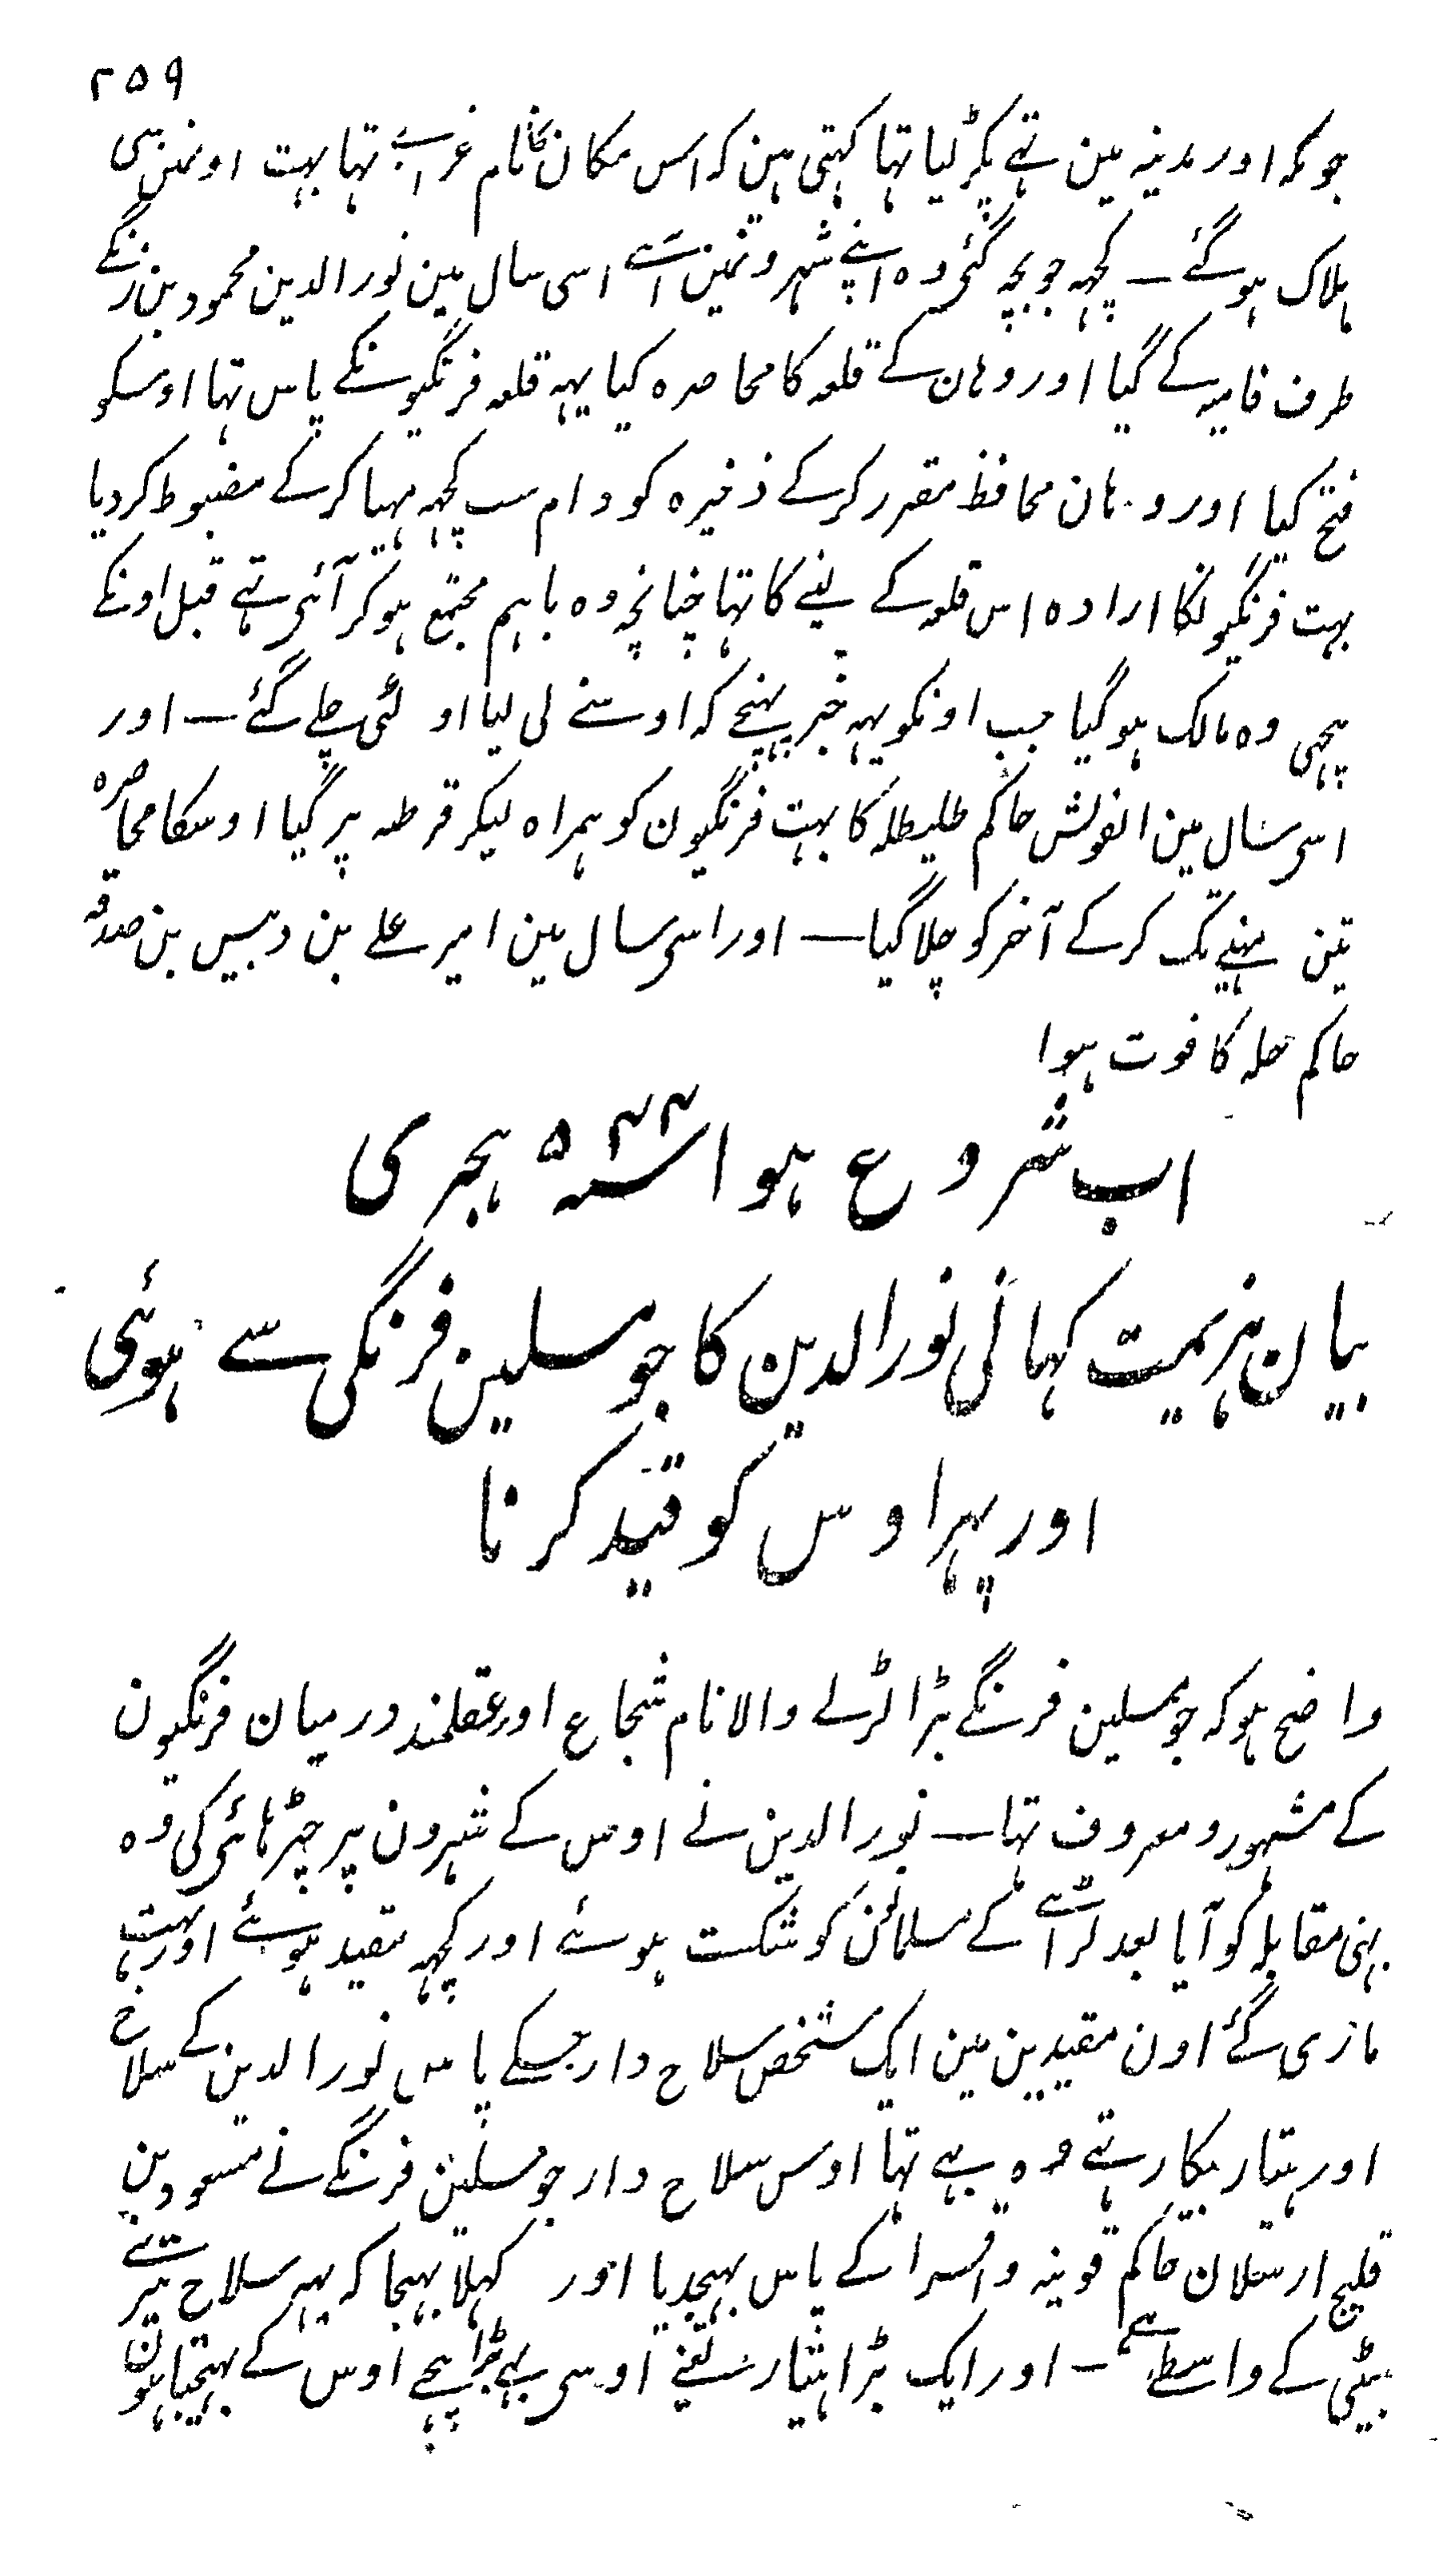 ۲۵۹
جو مکہ اور مدینہ مین تہے پکڑ لیا تہا کہتی ہین کہ اس مکان کا نام غرابے تہا بہت اونمین سی
ہلاک ہو گئے — کچہہ جو بچہ گئی وہ اپنے شہرونمین آے اسی سال مین نور الدین محمود بن زنگے
طرف فامیہ کے گیا اور وہان کے قلعہ کا محاصرہ کیا یہہ قلعہ فرنگیونکے پاس تہا اوسکو
فتح کیا اور وہان محافظ مقرر کر کے ذخیرہ کو دام سب کچہہ مہیا کر کے مضبوط کر دیا
بہت فرنگیونکا ارادہ اس قلعہ کے لینے کا تہا چنانچہ وہ باہم مجتمع ہو کر آئی تہے قبل اونکے
پہچی وہ مالک ہو گیا جب اونکو یہہ خبر پہنچے کہ اوسنے لی لیا او لٹی چلے گئے — اور
اسی سال مین الفونش حاکم طلیطلہ کا بہت فرنگیون کو ہمراہ لیکر قرطبہ پر گیا اوسکا محاصرہ
تین مہنے تک کر کے آخر کو چلا گیا — اور اسی سال مین امیر علے بن دبیس بن صدقہ
حاکم حلہ کا فوت ہوا
اب شروع ہوا سنہ ۵۴۴ ہجری
بیان ہزیمت کہانی نور الدین کا جوسلین فرنگی سے ہوئی
اور پہر اوس کو قید کرنا
واضح ہو کہ جوسلین فرنگے بڑا لڑنے والا نام شجاع اور عقلمند درمیان فرنگیون
کے مشہور و معروف تہا — نور الدین نے اوس کے شہرون پر چڑہائی کی وہ
بہی مقابلہ کو آیا بعد لڑائے کے مسلمانون کو شکست ہوئے اور کچہہ مقید ہوئے اور بہت
ماری گئے اون مقیدین مین ایک شخص سلاح دار جسکے پاس نور الدین کے سلاح
اور ہتیار بکار رہتے وہ بہے تہا اوس سلاح دار جوسلین فرنگے نے مسعود بن
قلیج ارسلان حاکم قونیہ و اقسرا کے پاس بہیجدیا اور کہلا بہیجا کہ یہہ سلاح تیرے
بیٹی کے واسطے ہے — اور ایک بڑا ہتیار یعنے اوسی بہی بڑا پیچے اوس کے بہیجتا ہون